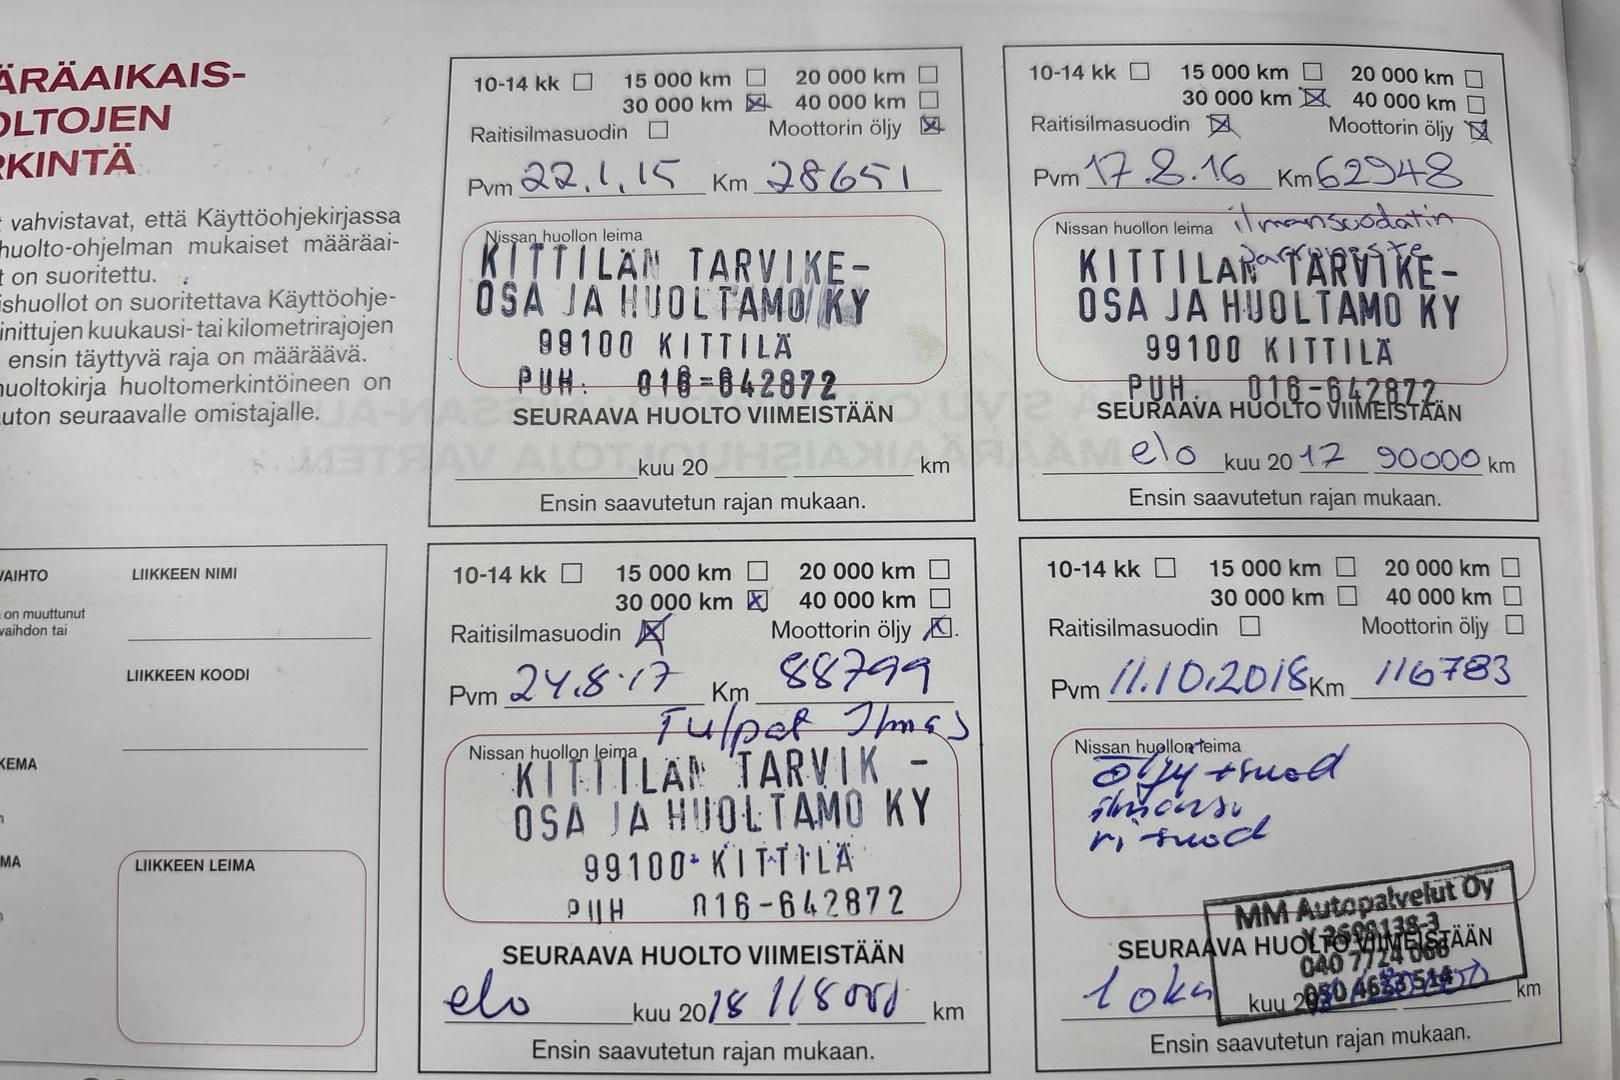 ÄRÄAIKAIS-
OLTOJEN
RKINTÄ
vahvistavat, että Käyttöohjekirjassa
huolto-ohjelman mukaiset määräai-
t on suoritettu.
ishuollot on suoritettava Käyttöohje-
inittujen kuukausi- tai kilometrirajojen
ensin täyttyvä raja on määräävä.
huoltokirja huoltomerkintöineen on
auton seuraavalle omistajalle.
10-14 kk 15 000 km 20 000 km
30 000 km 40 000 km
Raitisilmasuodin Moottorin öljy
Pvm 22.1.15 Km 28651
Nissan huollon leima
KITTILÄN TARVIKE-
OSA JA HUOLTAMO KY
99100 KITTILÄ
PUH. 016-642872
SEURAAVA HUOLTO VIIMEISTÄÄN
kuu 20 km
Ensin saavutetun rajan mukaan.
10-14 kk 15 000 km 20 000 km
30 000 km 40 000 km
Raitisilmasuodin Moottorin öljy
Pvm 17.8.16 Km 62948
Nissan huollon leima ilmansuodatin
KITTILÄN TARVIKE-
OSA JA HUOLTAMO KY
99100 KITTILÄ
PUH. 016-642872
SEURAAVA HUOLTO VIIMEISTÄÄN
elo kuu 20 17 90000 km
Ensin saavutetun rajan mukaan.
VAIHTO LIIKKEEN NIMI
on muuttunut
vaihdon tai
LIIKKEEN KOODI
KEMA
MA
LIIKKEEN LEIMA
10-14 kk 15 000 km 20 000 km
30 000 km 40 000 km
Raitisilmasuodin Moottorin öljy
Pvm 24.8.17 Km 88799
Tulpat Ilmas
Nissan huollon leima
KITTILÄN TARVIK -
OSA JA HUOLTAMO KY
99100 KITTILÄ
PUH 016-642872
SEURAAVA HUOLTO VIIMEISTÄÄN
elo kuu 20 18 118000 km
Ensin saavutetun rajan mukaan.
10-14 kk 15 000 km 20 000 km
30 000 km 40 000 km
Raitisilmasuodin Moottorin öljy
Pvm 11.10.2018 Km 116783
Nissan huollon leima
öljy + suod
ilmansu
ri-suod
MM Autopalvelut Oy
SEURAAVA HUOLTO VIIMEISTÄÄN
040 7724 066
050 4633 514
loka kuu 20 km
Ensin saavutetun rajan mukaan.